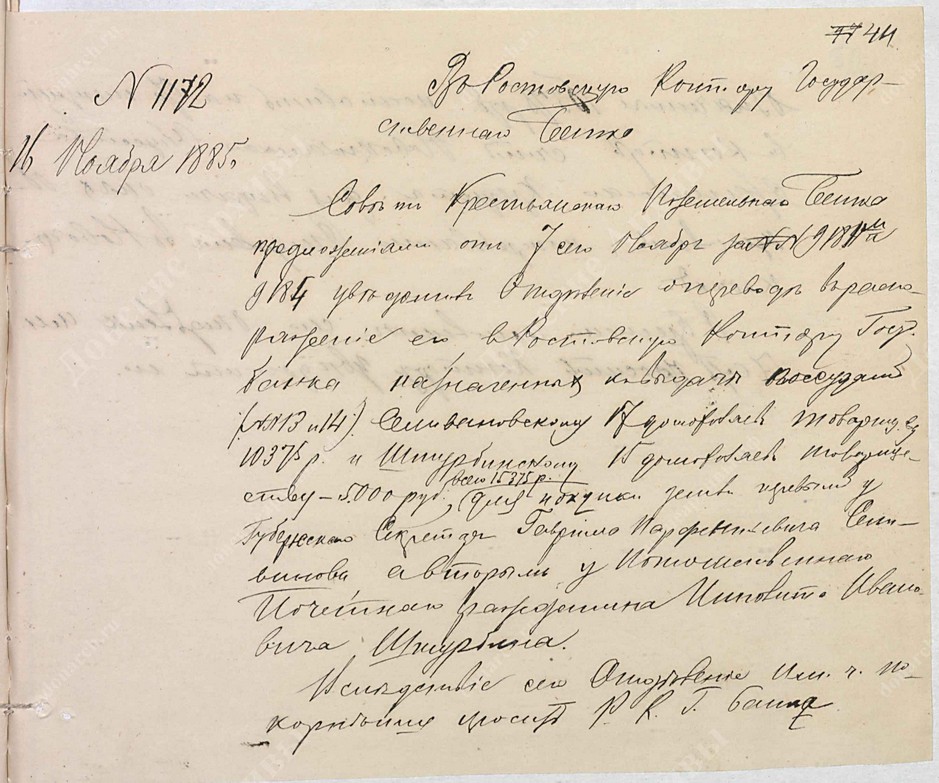 44
N 1172
16 Ноября 1885г
Въ Ростовскую Контору Государ-
ственнаго Банка
Совѣтъ Крестьянскаго Поземельнаго Банка
предложеніями отъ 7 сего Ноября за NN 9181 и
9184 увѣдомивъ Отдѣленіе о переводѣ въ распо-
ряженіе его въ Ростовскую Контору Госуд.
банка назначенныхъ къ выдачѣ въ ссуду
(NN 13 и 14) Селивановскому 17 домохозяевъ товарищ.
10375 р. и Шкурбинскому 15 домохозяевъ товарище-
ству – 5.000 руб.,
всего 15375 р.
для покупки земли первымъ у
Губернскаго Секретаря Гавріила Парфентьевича Сели-
ванова а вторымъ у Потомственнаго
Почетнаго гражданина Ипполита Ивано-
вича Шкурбина.
Вслѣдствіе сего Отдѣленіе им. ч. по-
корнѣйше просить Р. К. Г. банка